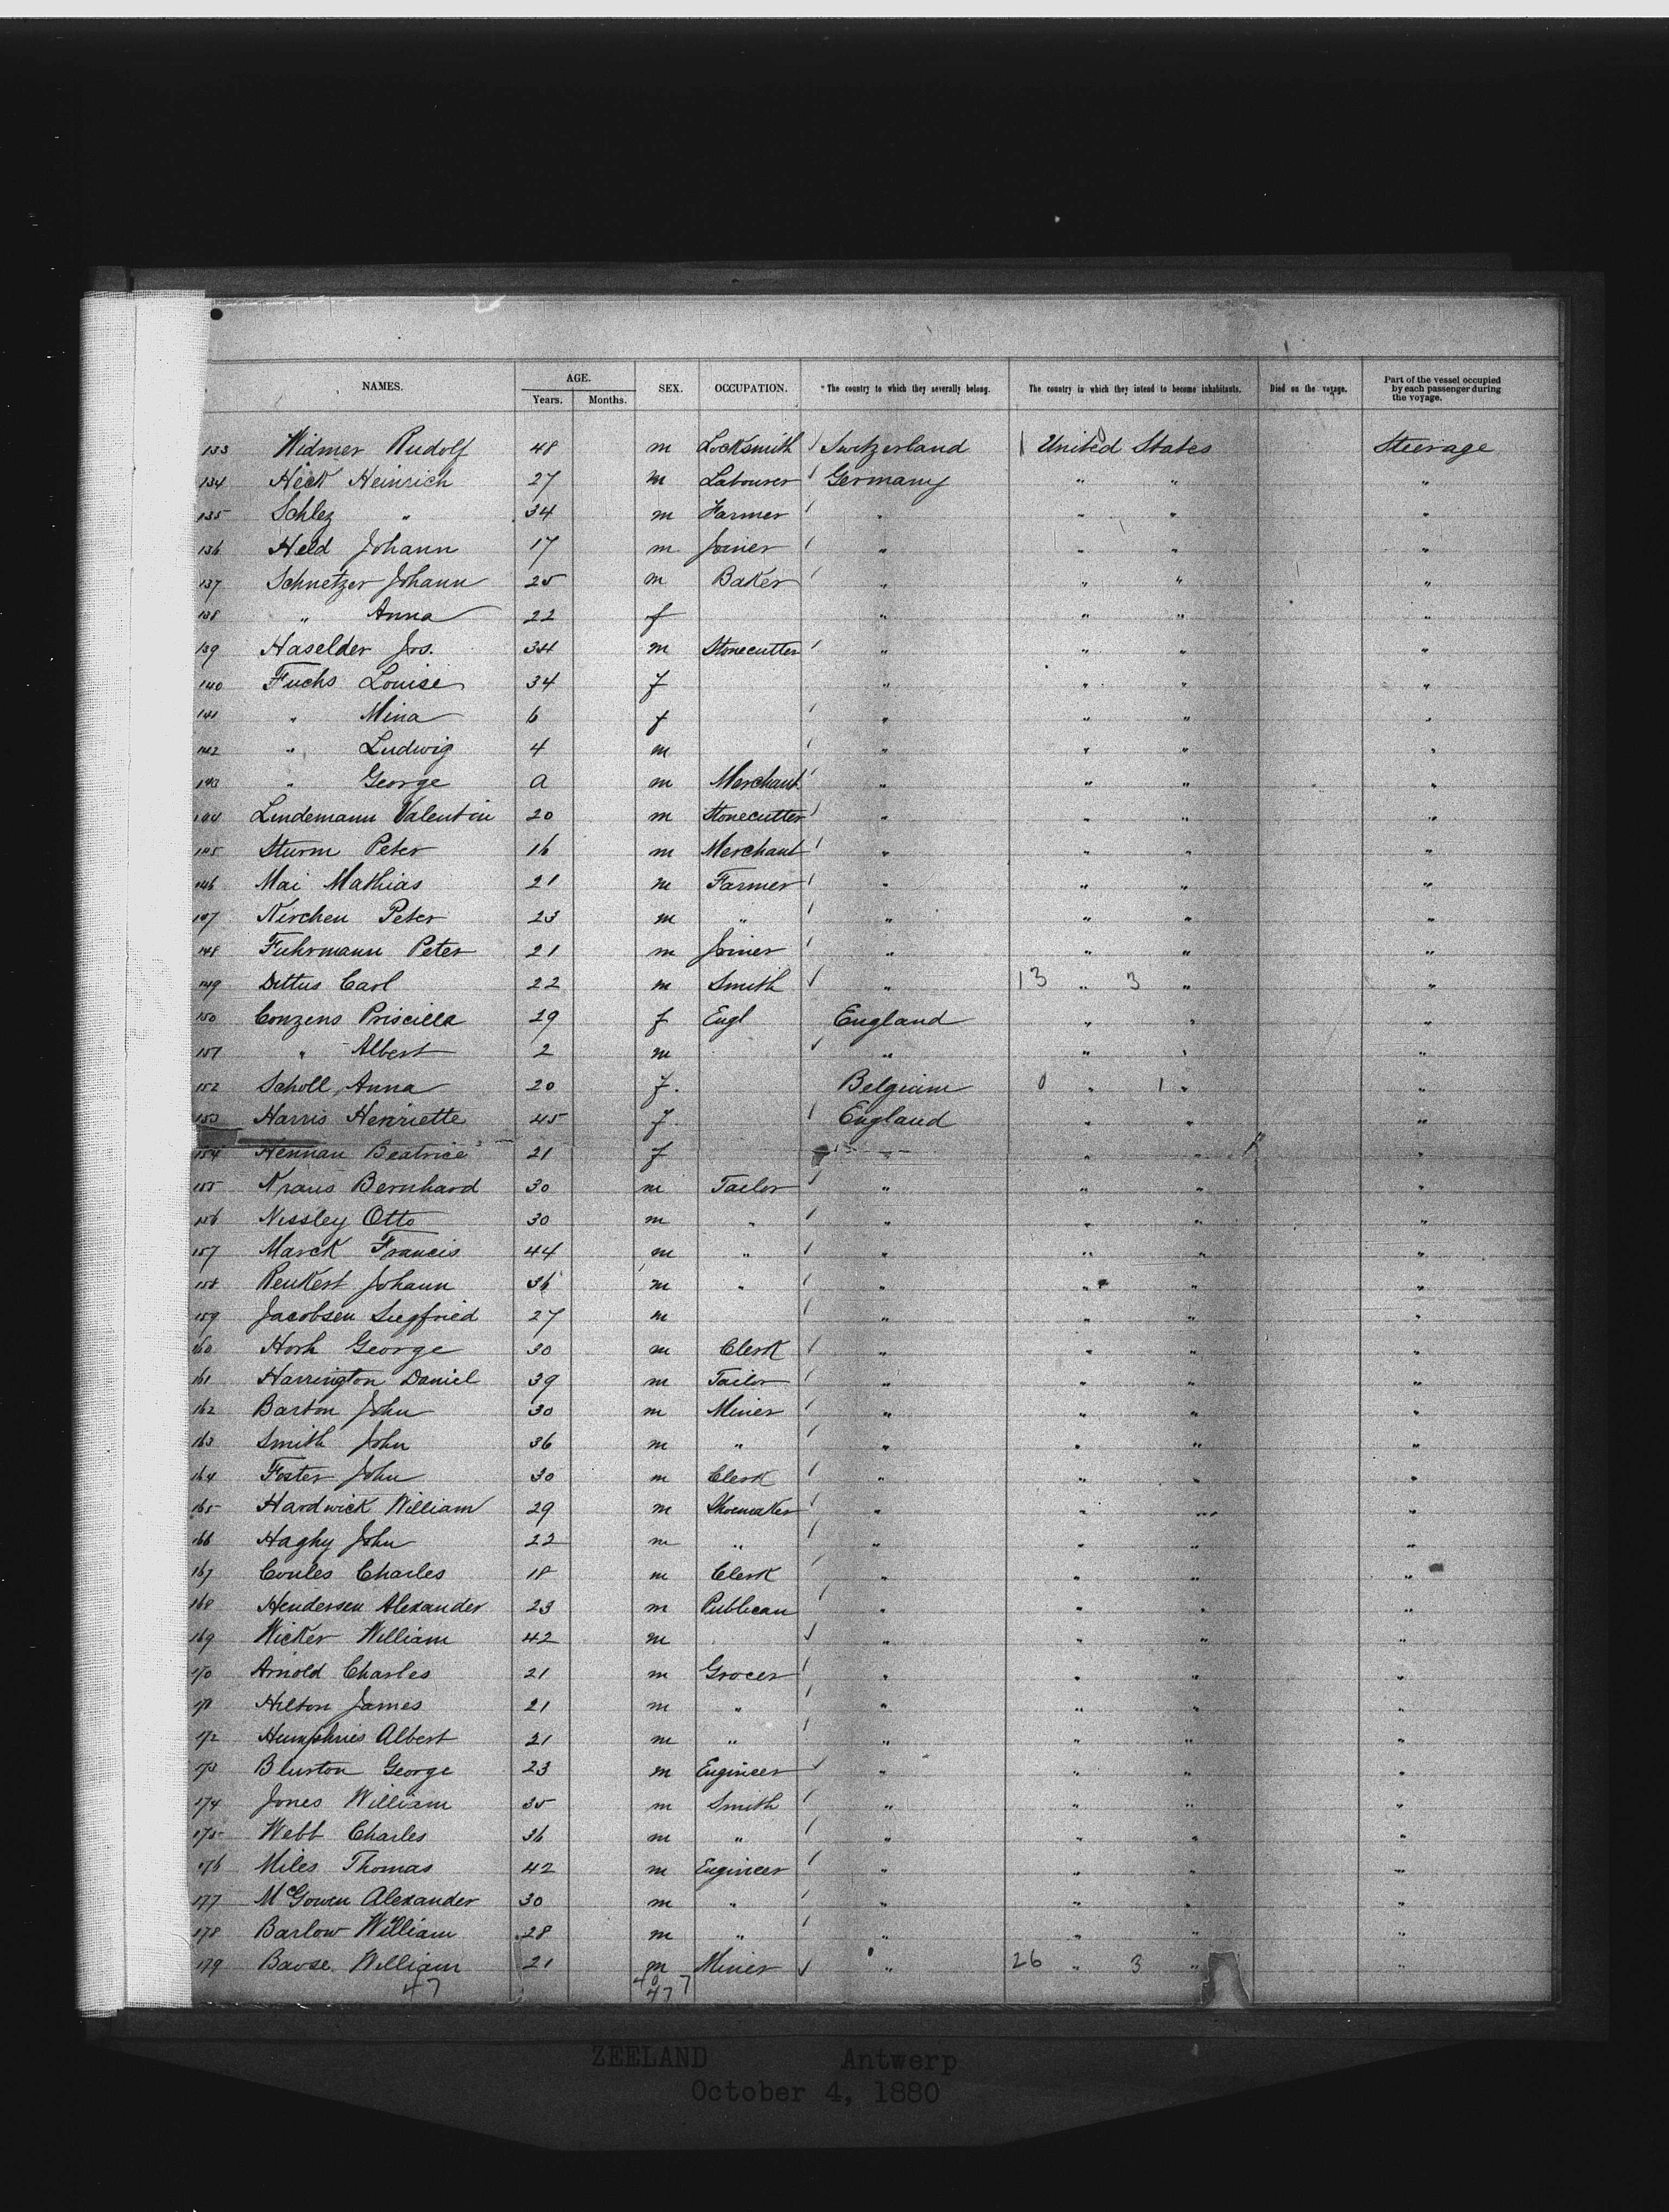 NAMES. AGE. SEX. OCCUPATION. *The country to which they severally belong. The country in which they intend to become inhabitants. Died on the voyage. Part of the vessel occupied by each passenger during the voyage.
Years. Months.
133 Widmer Rudolf 48 m Locksmith / Switzerland 1 United States Steerage
134 Heck Heinrich 27 m Labourer / Germany " " "
135 Schlez " 34 m Farmer / " " " "
136 Held Johann 17 m Joiner / " " " "
137 Schnetzer Johann 25 m Baker / " " " "
138 " Anna 22 f " " " "
139 Haselder Jos. 34 m Stonecutter / " " " "
140 Fuchs Louise 34 f " " " "
141 " Mina 6 f / " " " "
142 " Ludwig 4 m / " " " "
143 " George a m Merchant / " " " "
144 Lindemann Valentin 20 m Stonecutter / " " " "
145 Sturm Peter 16 m Merchant / " " " "
146 Mai Mathias 21 m Farmer / " " " "
147 Kirchen Peter 23 m " / " " " "
148 Fuhrmann Peter 21 m Joiner / " " " "
149 Dittus Carl 22 m Smith / " 13 " 3 " "
150 Conzens Priscilla 29 f Engl England " " "
151 " Albert 2 m / " " " "
152 Scholl Anna 20 f. Belgium 0 " 1 " "
153 Harris Henriette 45 f. / England " " "
154 Hennan Beatrice 21 f " " " "
155 Kraus Bernhard 30 m Tailor / " " " "
156 Nissley Otto 30 m " / " " " "
157 Marck Francis 44 m " / " " " "
158 Reukert Johann 36 m " / " " " "
159 Jacobsen Siegfried 27 m / " " " "
160 Horh George 30 m Clerk / " " " "
161 Harrington Daniel 39 m Tailor / " " " "
162 Barton John 30 m Miner / " " " "
163 Smith John 36 m " / " " " "
164 Foster John 30 m Clerk / " " " "
165 Hardwick William 29 m Shoemaker / " " " "
166 Haghy John 22 m " / " " " "
167 Coules Charles 18 m Clerk / " " " "
168 Hendersen Alexander 23 m Publican / " " " "
169 Wicker William 42 m / " " " "
170 Arnold Charles 21 m Grocer / " " " "
171 Hilton James 21 m " / " " " "
172 Humphries Albert 21 m " / " " " "
173 Blurton George 23 m Engineer / " " " "
174 Jones William 35 m Smith / " " " "
175 Webb Charles 36 m " / " " " "
176 Miles Thomas 42 m Engineer / " " " "
177 McGowen Alexander 30 m " / " " " "
178 Barlow William 28 m " / " " " "
179 William 21 m Miner / " 26 " 3 " "
47 40 7
47
ZEELAND Antwerp
October 4, 1880